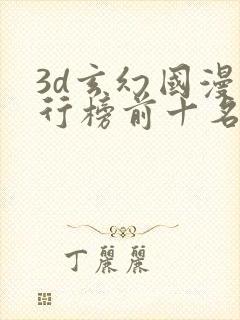 3d玄幻國漫
行榜前十名
丁麗麗